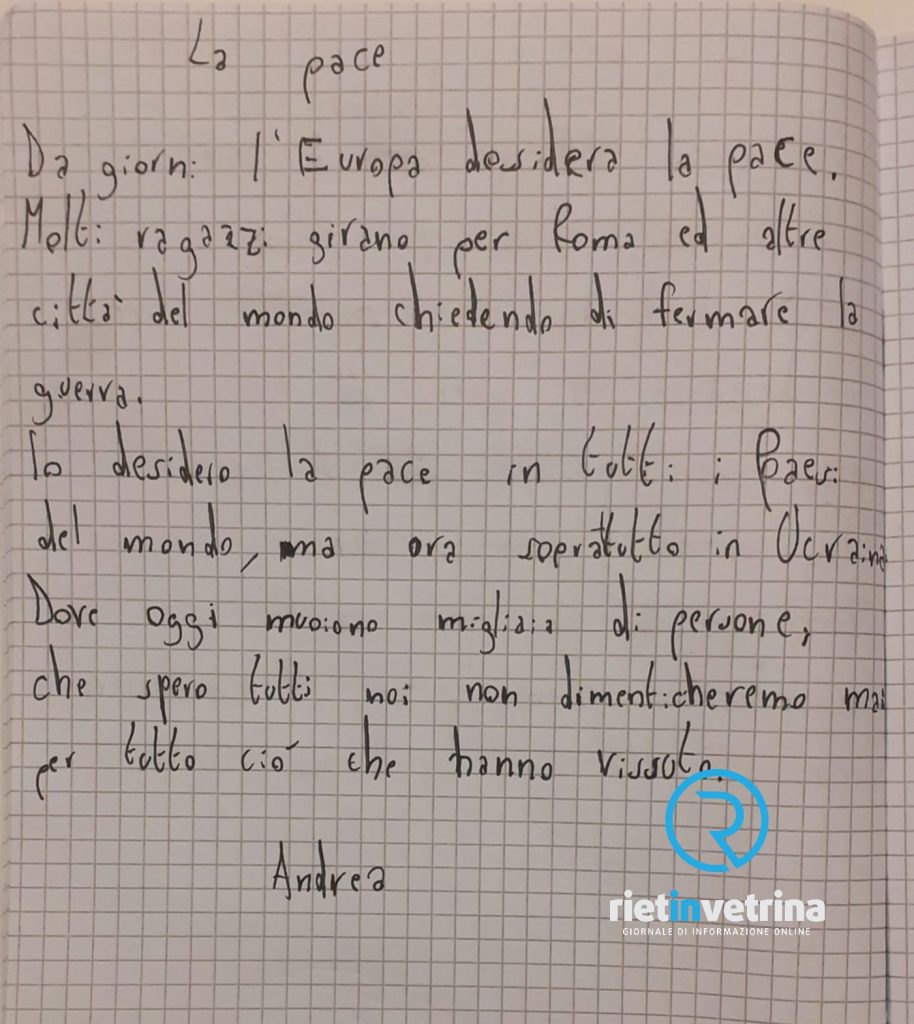 La pace
Da giorni l'Europa desidera la pace.
Molti ragazzi girano per Roma ed altre
città del mondo chiedendo di fermare la
guerra.
Io desidero la pace in tutti i Paesi
del mondo, ma ora sopratutto in Ucraina
Dove oggi muoiono migliaia di persone,
che spero tutti noi non dimenticheremo mai
per tutto ciò che hanno vissuto.
Andrea
rietinvetrina
GIORNALE DI INFORMAZIONE ONLINE